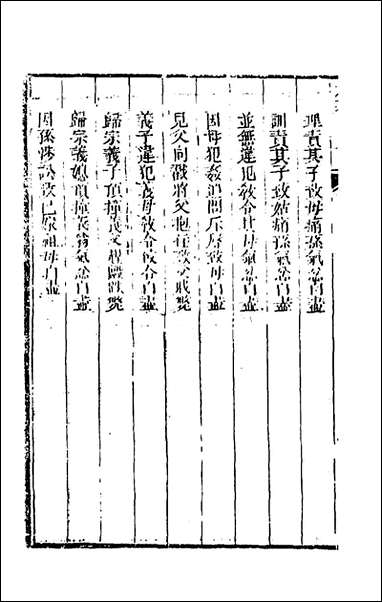 理責其子致母痛孫氣忿自盡
訓責其子致姑痛孫氣忿自盡
並無違犯教令其母氣忿自盡
因母犯姦追問斥辱致母自盡
兄父向戳將父抱住致父戕斃
義子違犯義母教令致令自盡
歸宗義子頂撞義父趕毆跌斃
歸宗義媳頂撞義翁氣忿自盡
因孫涉訟致己故祖母自盡